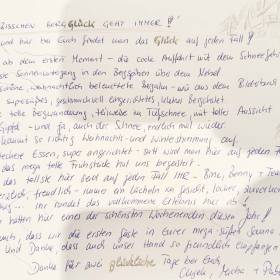 BISSCHEN BERGGLÜCK GEHT IMMER !
und hier bei Euch findet man das Glück auf jeden Fall !
ab dem ersten Moment - die coole Auffahrt mit dem Schneefahr
Sonnenuntergang in den Bergspitzen über dem Nebel
schöne, weihnachtlich beleuchtete Bergalm - wie aus dem Bilderbuch
supersüßes, geschmackvoll eingerichtetes, kleines Bergchalet
tolle Bergwanderung, teilweise im Tiefschnee, mit toller Aussicht
Gipfel - und ja, auch der Schnee, endlich mal wieder
kommt so richtig Weihnachts- und Winterstimmung auf
leckere Essen, super angerichtet - satt wird man hier auf jeden F
das mega tolle Frühstück hat uns begeistert.
das tollste hier seid auf jeden Fall IHR - Bine, Benny + Tea
herzlich, freundlich - immer ein Lächeln im Gesicht, locker,
Ihr rundet das vollkommene Erlebnis hier ab !
hatten hier eines der schönsten Wochenenden dieses Jahr !
auch, dass wir die ersten Gäste in Eurer mega-süßen Sauna
und Danke, dass auch unser Hund so freundlich empfange
Danke für zwei glückliche Tage bei Euch,
Micha +